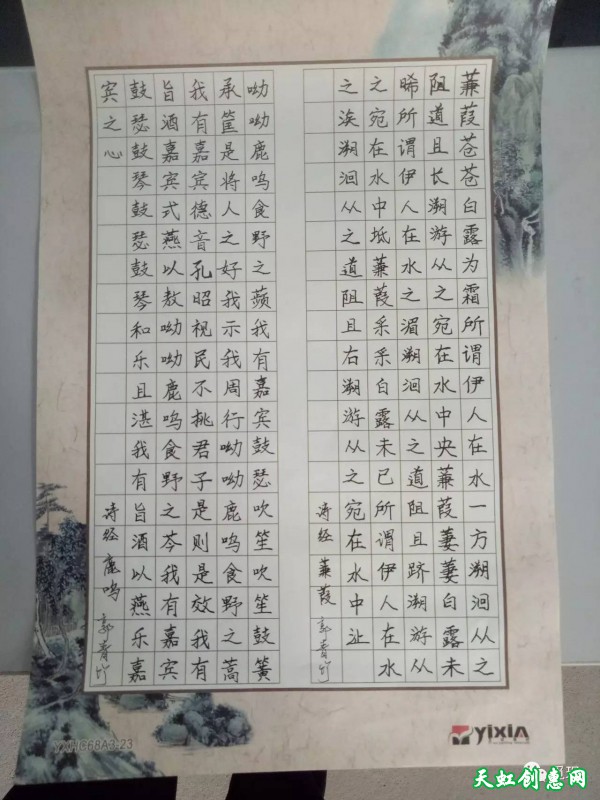 蒹葭苍苍白露为霜所谓伊人在水一方溯洄从之
阻道且长溯游从之宛在水中央蒹葭萋萋白露未
晞所谓伊人在水之湄溯洄从之道阻且跻溯游从
之宛在水中坻蒹葭采采白露未已所谓伊人在水
之涘溯洄从之道阻且右溯游从之宛在水中沚
诗经 蒹葭 郭青
呦呦鹿鸣食野之蘋我有嘉宾鼓瑟吹笙吹笙鼓簧
承筐是将人之好我示我周行呦呦鹿鸣食野之蒿
我有嘉宾德音孔昭视民不挑君子是则是效我有
旨酒嘉宾式燕以敖呦呦鹿鸣食野之芩我有嘉宾
鼓瑟鼓琴鼓瑟鼓琴和乐且湛我有旨酒以燕乐嘉
宾之心
诗经 鹿鸣 郭青
YXHC68A3-23
yixin
天虹创意网